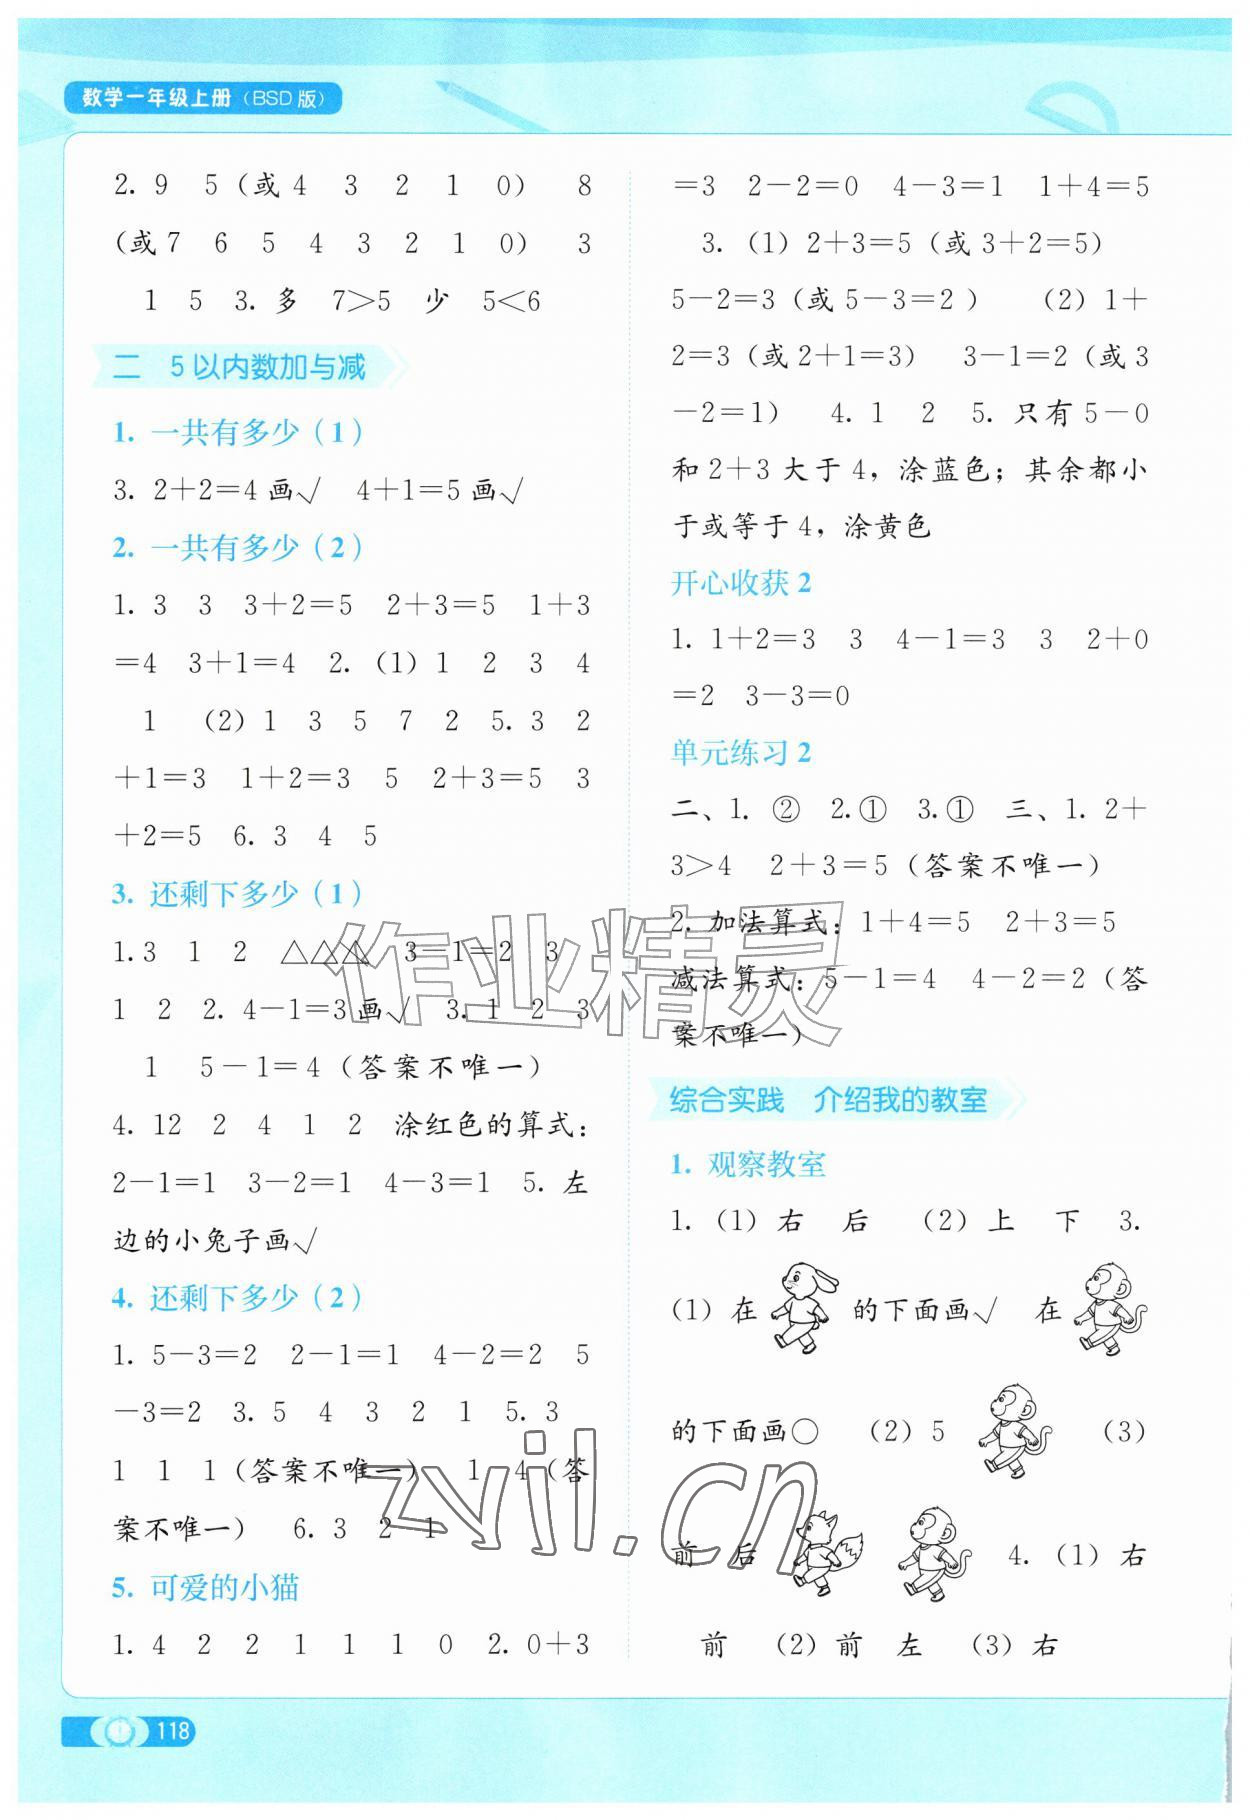 数学一年级上册（BSD 版）
2. 9　5（或 4　3　2　1　0）　8
（或 7　6　5　4　3　2　1　0）　3
1　5　3. 多　7＞5　少　5＜6
二　5 以内数加与减
1. 一共有多少（1）
3. 2＋2＝4 画√　4＋1＝5 画√
2. 一共有多少（2）
1. 3　3　3＋2＝5　2＋3＝5　1＋3
＝4　3＋1＝4　2.（1）1　2　3　4
1　（2）1　3　5　7　2　5. 3　2
＋1＝3　1＋2＝3　5　2＋3＝5　3
＋2＝5　6. 3　4　5
3. 还剩下多少（1）
1. 3　1　2　△△△　3－1＝2　3
1　2　2. 4－1＝3 画√　3. 1　2　3
1　5－1＝4（答案不唯一）
4. 12　2　4　1　2　涂红色的算式：
2－1＝1　3－2＝1　4－3＝1　5. 左
边的小兔子画√
4. 还剩下多少（2）
1. 5－3＝2　2－1＝1　4－2＝2　5
－3＝2　3. 5　4　3　2　1　5. 3
1　1　1（答案不唯一）　1　4（答
案不唯一）　6. 3　2　1
5. 可爱的小猫
1. 4　2　2　1　1　1　0　2. 0＋3
＝3　2－2＝0　4－3＝1　1＋4＝5
3.（1）2＋3＝5（或 3＋2＝5）
5－2＝3（或 5－3＝2）　（2）1＋
2＝3（或 2＋1＝3）　3－1＝2（或 3
－2＝1）　4. 1　2　5. 只有 5－0
和 2＋3 大于 4，涂蓝色；其余都小
于或等于 4，涂黄色
开心收获 2
1. 1＋2＝3　3　4－1＝3　3　2＋0
＝2　3－3＝0
单元练习 2
二、1. ②　2. ①　3. ①　三、1. 2＋
3＞4　2＋3＝5（答案不唯一）
2. 加法算式：1＋4＝5　2＋3＝5
减法算式：5－1＝4　4－2＝2（答
案不唯一）
综合实践　介绍我的教室
1. 观察教室
1.（1）右　后　（2）上　下　3.
（1）在　的下面画√　在
的下面画○　（2）5　（3）
前　后　4.（1）右
前　（2）前　左　（3）右
作业精灵
zyjl.cn
118